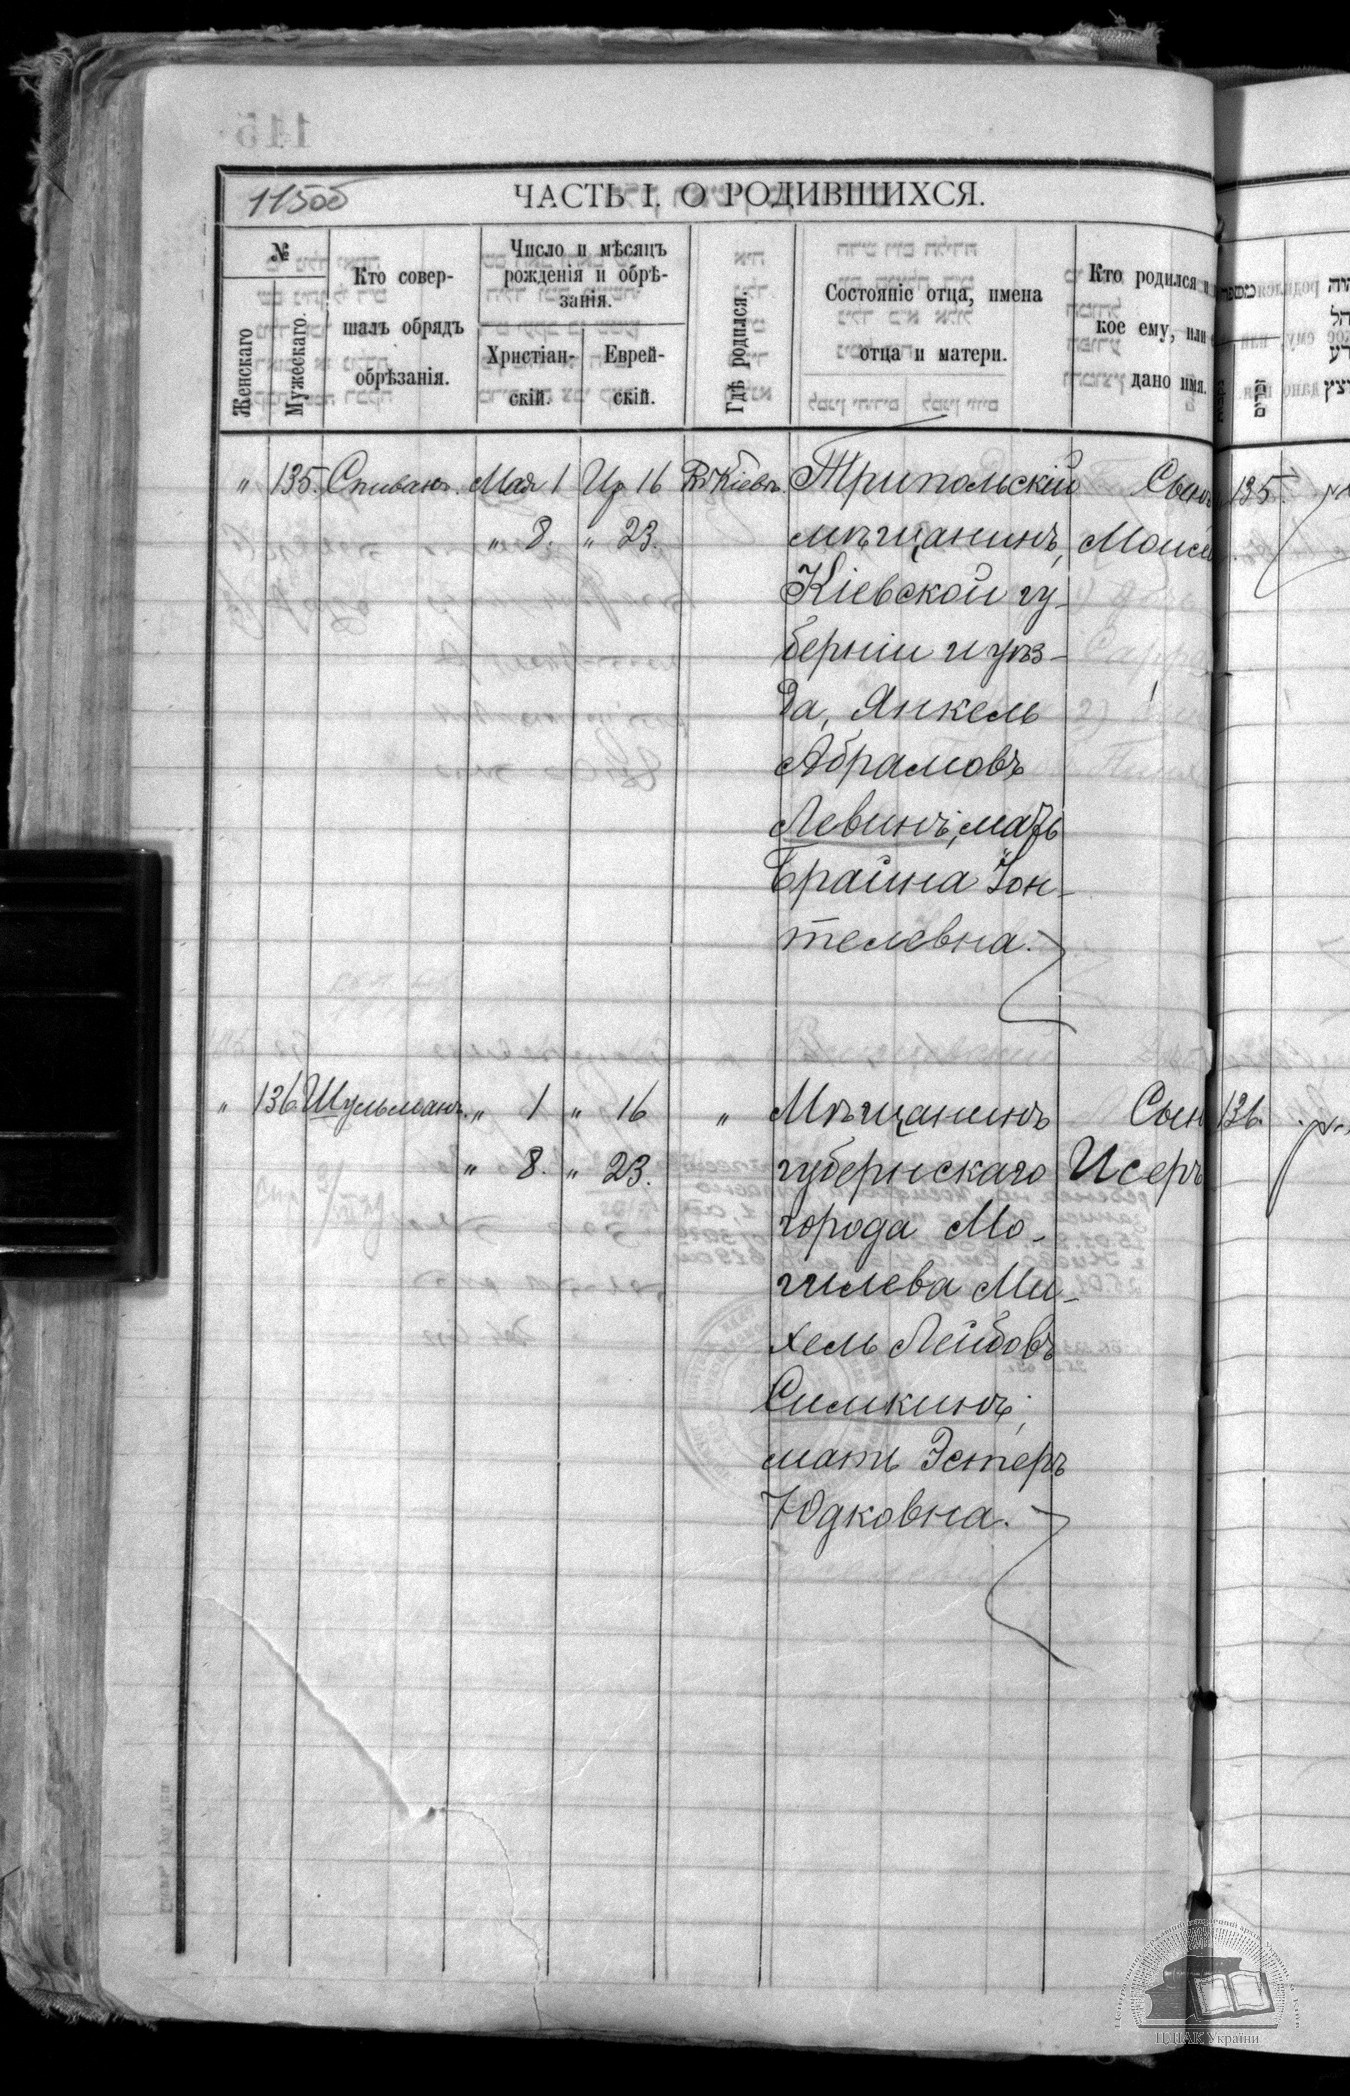 115об
ЧАСТЬ I. О РОДИВШИХСЯ.
№
Женскаго
Мужескаго.
Кто совер-
шалъ обрядъ
обрѣзанія.
Число и мѣсяцъ
рожденія и обрѣ-
занія.
Христіан-
скій.
Еврей-
скій.
Гдѣ родился.
Состояніе отца, имена
отца и матери.
Кто родился и
кое ему, или
дано имя.
„ 135. Спивакъ. Мая 1 Ир 16 Въ Кіевѣ. Трипольскій Сынъ 135.
„ 8. „ 23. мѣщанинъ, Моисей
Кіевской гу-
берніи и уѣз-
да, Янкель
Абрамовъ
Левинъ, мать
Брайна Іон-
телевна.
„ 136 Шульманъ. „ 1 „ 16 „ Мѣщанинъ Сынъ 136.
„ 8. „ 23. губернскаго Исеръ
города Мо-
гилева Ми-
хель Лейбовъ
Симкинъ,
мать Эстеръ
Юдковна.
ЦДІАК України